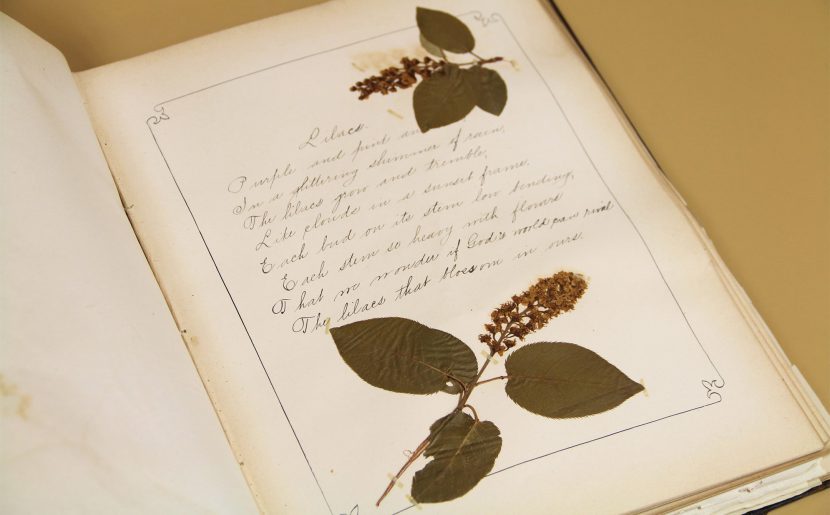 Lilacs.
Purple and pink
In a glittering shimmer of rain,
The lilacs grow and tremble,
Like clouds in a sunset frame.
Each bud on its stem low bending,
Each stem so heavy with flowers
That we wonder if God's world can rival
The lilacs that blossom in ours.